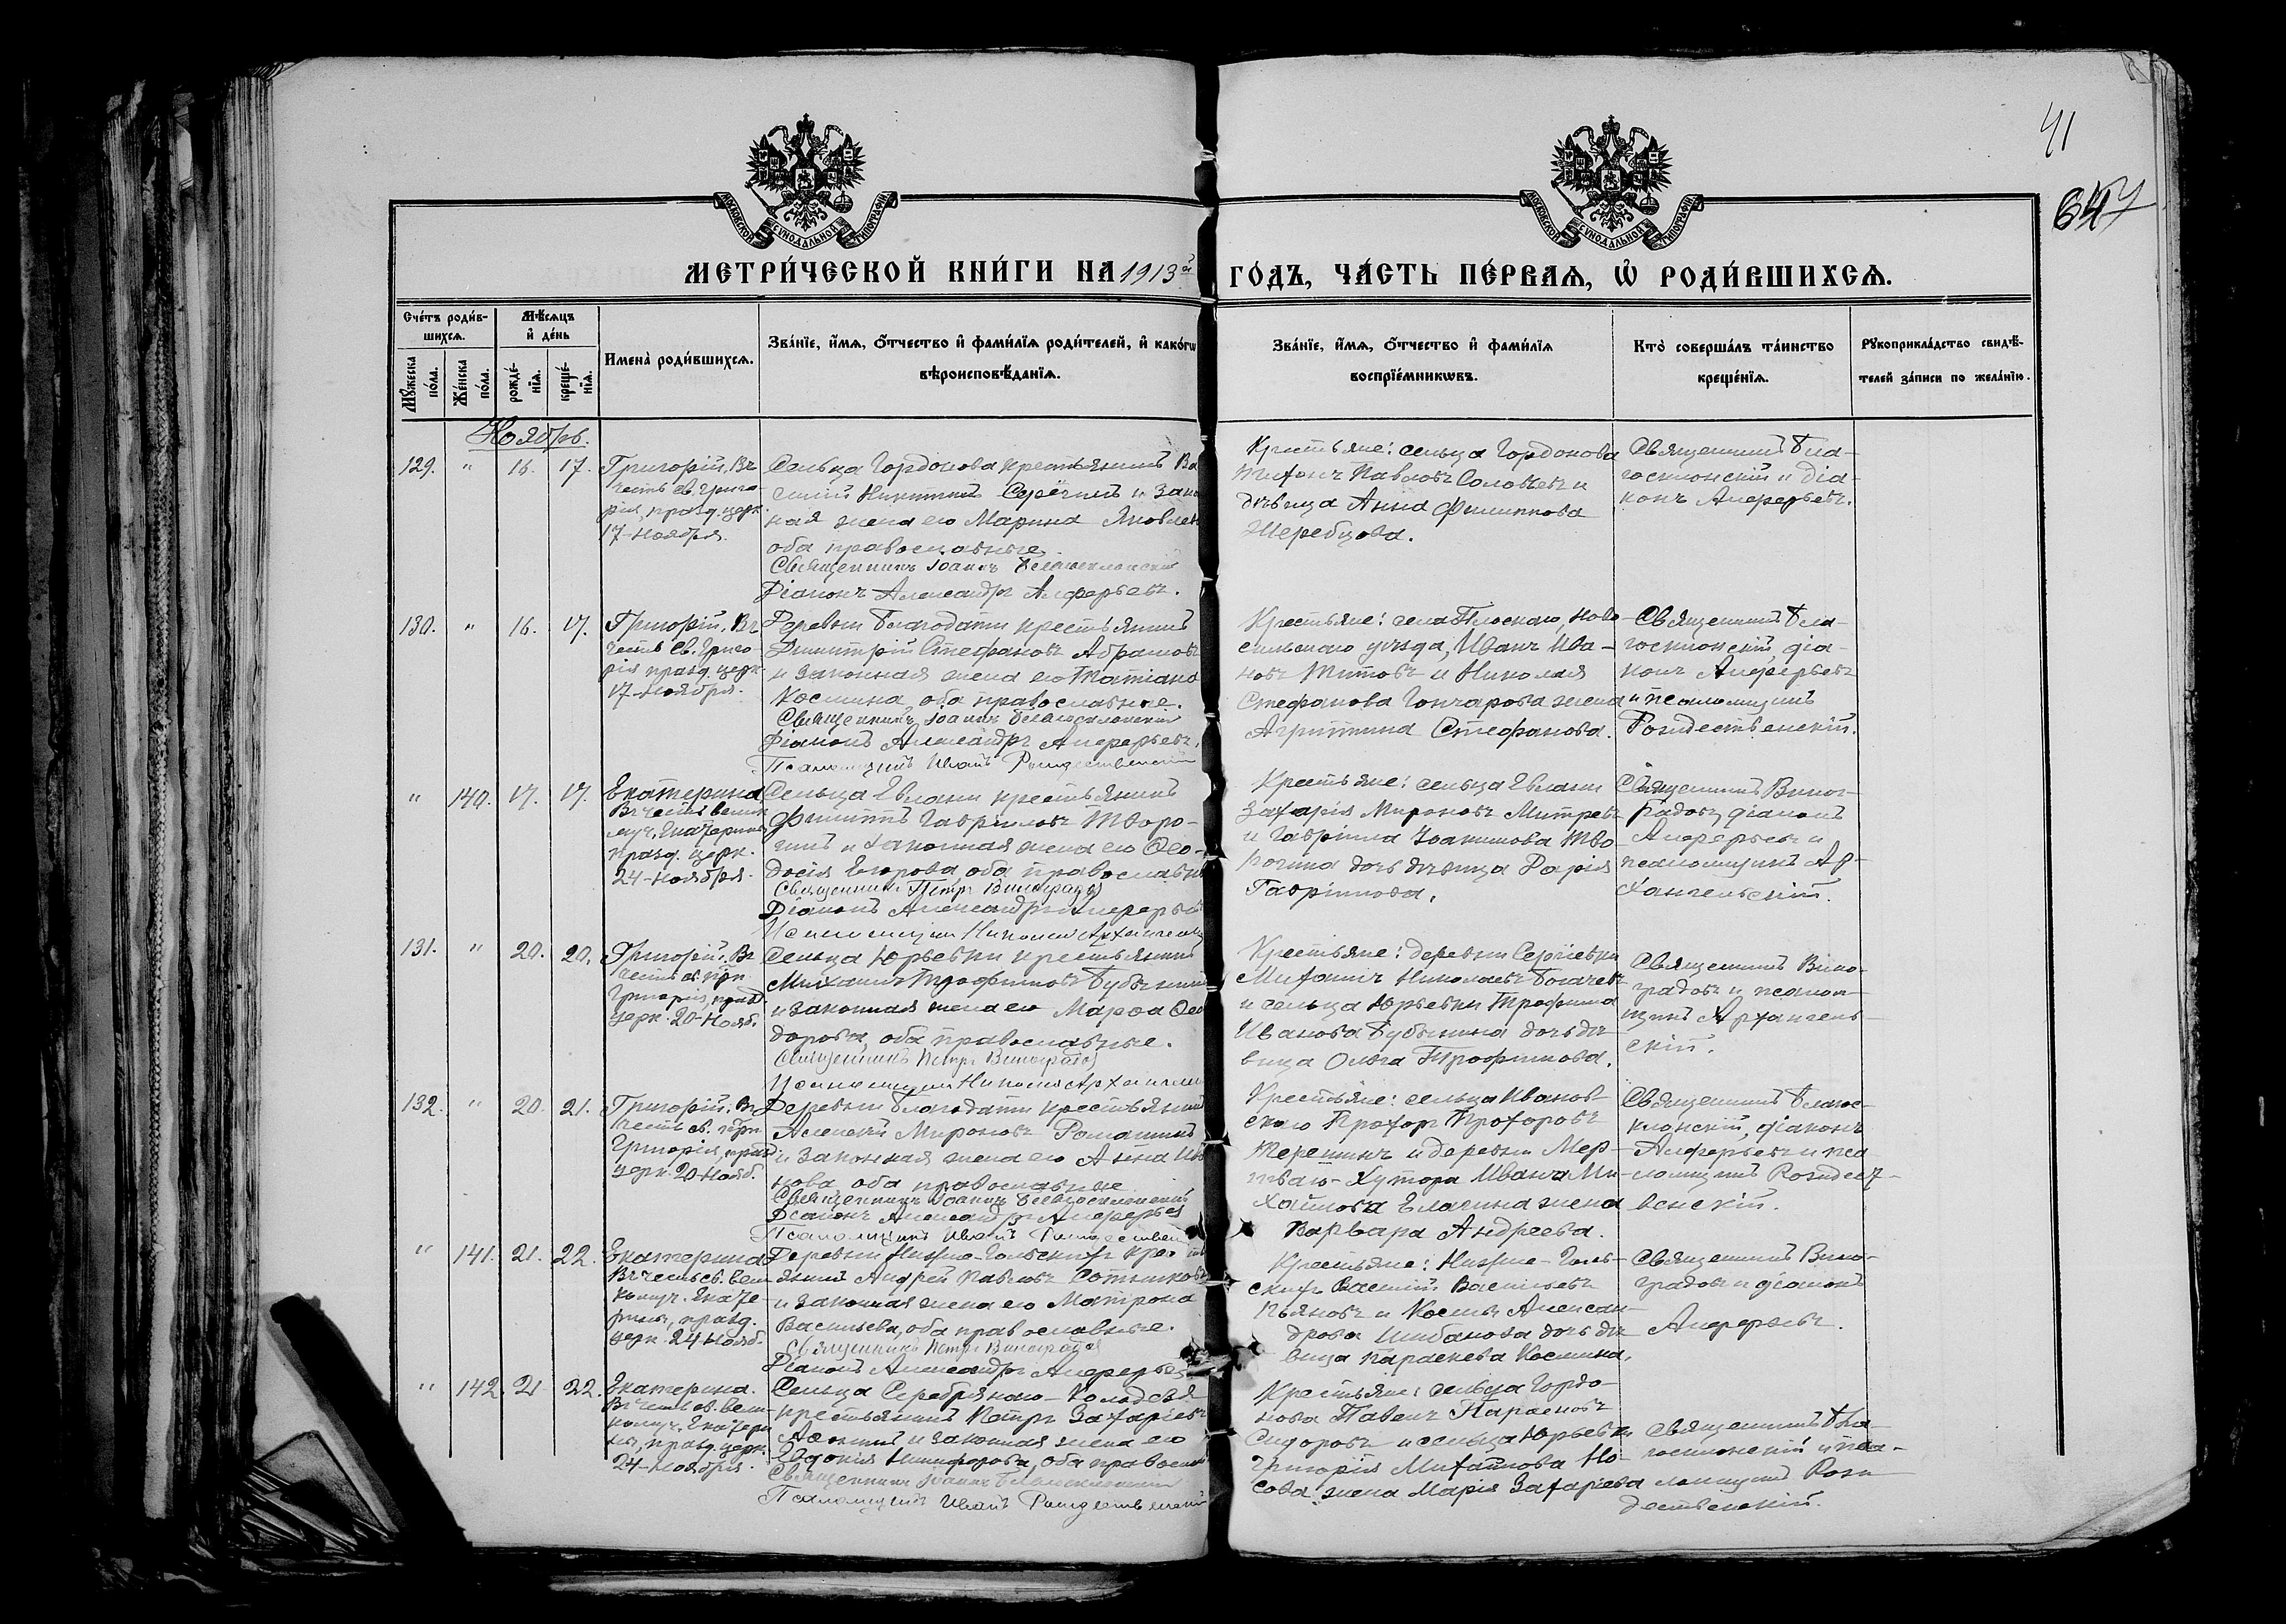 41
647
МОСКОВСКОЙ СѴНОДАЛЬНОЙ ТИПОГРАФІИ
МОСКОВСКОЙ СѴНОДАЛЬНОЙ ТИПОГРАФІИ
МЕТРИ́ЧЕСКОЙ КНИ́ГИ НА 1913й ГО́ДЪ, ЧА́СТЬ ПЕ́РВАѦ, Ѡ҆ РОДИ́ВШИХСѦ.
Счетъ роди́в-
шихсѧ.
Мѣ́сѧцъ
и҆ де́нь
Мꙋ́жеска
по́ла.
Же́нска
по́ла.
рожде́-
нїѧ.
креще́-
нїѧ.
Имена̀ роди́вшихсѧ.
Зва́нїе, и҆́мѧ, ѻ҆́тчество и҆ фами́лїѧ роди́телей, и҆ како́гѡ
вѣроисповѣ́данїѧ.
Зва́нїе, и҆́мѧ, ѻ҆́тчество и҆ фами́лїѧ
воспрїе́мникѡвъ.
Кто̀ соверша́лъ та́инство
креще́нїѧ.
Рꙋкоприкла́дство свидѣ́-
телей за́писи по жела́нїю.
Ноябрь.
129. " 16. 17.
Григорій. Въ
честь св. Григо-
рія, празд. церк.
17-Ноября.
Сельца Гордонова крестьянинъ Ва
силій Никитинъ Серёгинъ и закон
ная жена его Марина Яковлев
оба православные.
Священникъ Іоаннъ Благосклонскій
Діаконъ Александръ Алферьевъ.
Крестьяне: сельца Гордонова
Тихонъ Павловъ Соловьевъ и
дѣвица Анна Филиппова
Жеребцова.
Священникъ Бла-
госклонскій и діа-
конъ Алферьевъ.
130. " 16. 17.
Григорій. Въ
честь Св. Григо-
рія празд. церк.
17-Ноября.
Деревни Благодати крестьянинъ
Димитрій Стефановъ Абрамовъ
и законная жена его Татіана
Космина, оба православные.
Священникъ Іоаннъ Благосклонскій
Діаконъ Александръ Алферьевъ.
Псаломщикъ Иванъ Рождественскій
Крестьяне: села Плоскаго, Ново-
сильскаго уѣзда, Иванъ Ива-
новъ Титовъ и Николая
Стефанова Гончарова жена
Агриппина Стефанова.
Священникъ Бла-
госклонскій, діа-
конъ Алферьевъ
и псаломщикъ
Рождественскій.
" 140. 17. 17.
Екатерина
Въ честь велик
муч. Екатерины
празд. церк.
24-Ноября.
Сельца Евлани крестьянинъ
Филиппъ Гавриловъ Творо-
гинъ и законная жена его Ѳео-
досія Егорова, оба православн
Священникъ Петръ Виноградов
Діаконъ Александръ Алферьев
Псаломщикъ Николай Архангельск
Крестьяне: сельца Евлани
Захарія Мироновъ Митревъ
и Гавріила Іоакимова Тво-
рогина дочь дѣвица Дарія
Гавріилова.
Священникъ Виног-
радовъ, діаконъ
Алферьевъ и
псаломщикъ Ар-
хангельскій.
131. " 20. 20.
Григорій. Въ
честь св. прп
Григорія, празд.
церк. 20-Нояб.
Сельца Юрьевки крестьянинъ
Михаилъ Трофимовъ Бубыкинъ
и законная жена его Марѳа Ѳео
дорова, оба православные.
Священникъ Петръ Виноградов
Псаломщикъ Николай Архангельск
Крестьяне: деревни Сергіевки
Митофанъ Николаевъ Богачевъ
и сельца Юрьевки Трофима
Иванова Бубыкина дочь дѣ-
вица Ольга Трофимова.
Священникъ Вино-
градовъ и псалом-
щикъ Архангель-
скій.
132. " 20. 21.
Григорій. Въ
честь св. прп
Григорія, празд
церк. 20-Нояб.
Деревни Благодати крестьянинъ
Алексѣй Мироновъ Романинъ
и законная жена его Анна Ива
нова оба православные
Священникъ Іоаннъ Благосклонскій
Діаконъ Александръ Алферьев
Псаломщикъ Иванъ Рождественск
Крестьяне: сельца Иванов-
скаго Прохоръ Прохоровъ
Терехинъ и деревни Мер-
тваго-Хутора Ивана Ми-
хайлова Елагина жена
Варвара Андреева.
Священникъ Благос-
клонскій, діаконъ
Алферьевъ и пса-
ломщикъ Рождест-
венскій.
" 141. 21. 22.
Екатерина
Въ честь св. вели
комуч. Екате
рины, празд.
церк. 24 Нояб.
Деревни Нижне-Гольскихъ крест
янинъ Андрей Павловъ Сотниковъ
и законная жена его Матрона
Васильева, оба православные.
Священникъ Петръ Виноградов
Діаконъ Александръ Алферьев
Крестьяне: Нижне-Голь-
скихъ Василій Васильевъ
Пьяновъ и Космы Алексан-
дрова Шибанова дочь дѣ-
вица Параскева Космина.
Священникъ Вино-
градовъ и діаконъ
Алферьевъ.
" 142. 21. 22.
Екатерина.
Въ честь св. вели-
комуч. Екатери
ны, празд. церк.
24-Ноября.
Сельца Серебрянаго-Колодезя
крестьянинъ Петръ Захаріевъ
и законная жена его
Евдокія Никифорова, оба правосл
Священникъ Іоаннъ Благосклонскій
Псаломщикъ Иванъ Рождественскій
Крестьяне: сельца Гордо-
нова Павелъ
Сидоровъ и сельца Юрьевки
Григорія Михайлова Но-
сова жена Марія Захаріева
Священникъ Бла-
госклонскій и пса-
ломщикъ Рож-
дественскій.